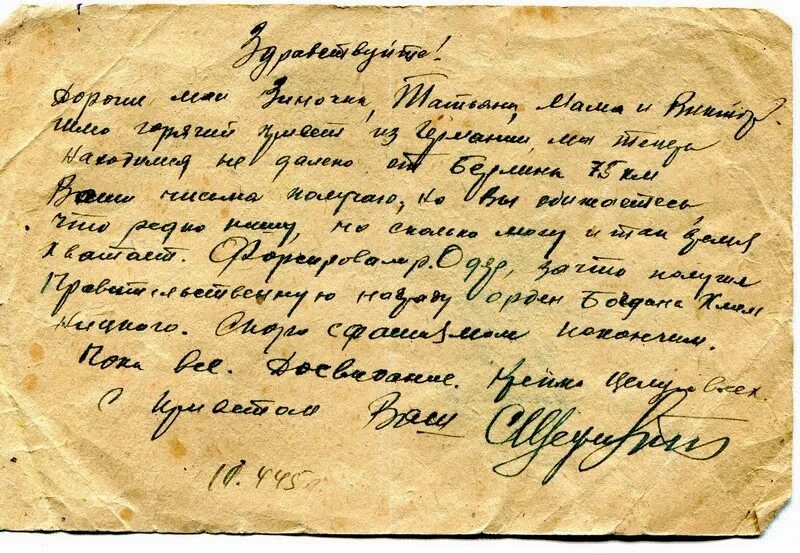 Здравствуйте!
Дорогие мои Зиночка, Татьяна, Мама и Виктор.
шлю горячий привет из Германии, мы теперь
находимся не далеко от Берлина 75 км
Ваши письма получаю, но Вы обижаетесь
что редко пишу, но сколько могу и так время
хватает. Форсировали р. Одер, за что получил
Правительственную награду орден Богдана Хмель
ницкого. Скоро с фашизмом покончим.
Пока все. Досвидание. Крепко целую всех.
С приветом Ваш
10.4.45г